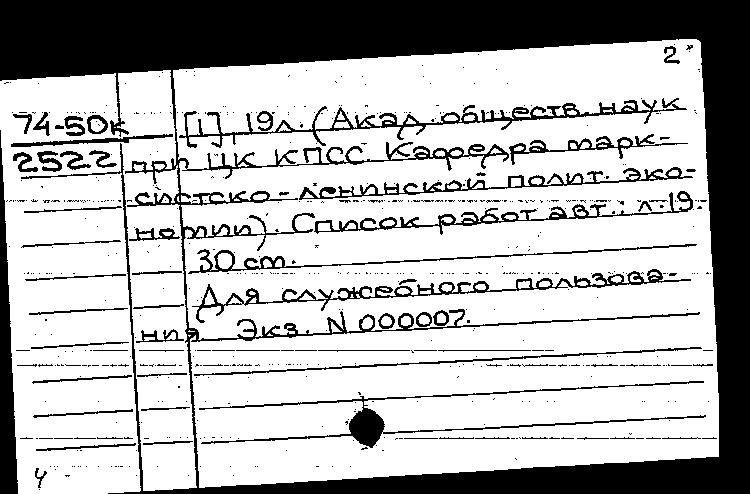 2*
74-50к [1], 19л. (Акад. обществ. наук
2522 при ЦК КПСС. Кафедра марк-
систско-ленинской полит. эко-
номии). Список работ авт.: л.19.
30 см.
Для служебного пользова-
ния Экз. N 000007.
4